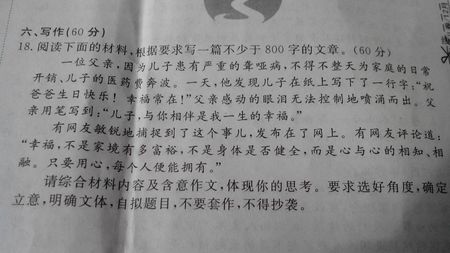 六、写作(60分)
18.阅读下面的材料,根据要求写一篇不少于800字的文章。(60分)
一位父亲,因为儿子患有严重的聋哑病,不得不整天为家庭的日常
开销、儿子的医药费奔波。一天,他发现儿子在纸上写下了一行字:“祝
爸爸生日快乐!幸福常在!”父亲感动的眼泪无法控制地喷涌而出。父
亲用笔写到:“儿子,与你相伴是我一生的幸福。”
有网友敏锐地捕捉到了这个事儿,发布在了网上。有网友评论道:
“幸福,不是家境有多富裕,不是身体是否健全,而是心与心的相知、相
融。只要用心,每个人便能拥有。”
请综合材料内容及含意作文,体现你的思考。要求选好角度,确定
立意,明确文体,自拟题目,不要套作,不得抄袭。